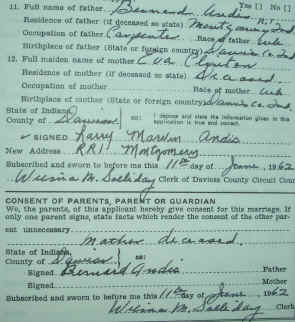 Yes [ ] No [ ]
11. Full name of father Bernard Andis R.1
Residence of father (if deceased so state) Montgomery Ind
Occupation of father Carpenter Race of father wh
Birthplace of father (State or foreign country) Daviess Co. Ind.
12. Full maiden name of mother Eva
Residence of mother (if deceased so state) Deceased
Occupation of mother Race of mother wh
Birthplace of mother (State or foreign country) Daviess Co. Ind.
State of Indiana
County of Daviess ss: I depose and state the information given in this
application is true and correct.
SIGNED Larry Marvin Andis
New Address RR1 Montgomery
Subscribed and sworn to before me this 11th day of June, 1962
Wilma M. Solliday Clerk of Daviess County Circuit Cour
CONSENT OF PARENTS, PARENT OR GUARDIAN
We, the parents, of this applicant hereby give consent for this marriage. If
only one parent signs, state facts which render the consent of the other par-
ent unnecessary
Mother deceased.
State of Indiana,
County of Daviess ss:
Signed Bernard Andis Father
Signed Mother
Subscribed and sworn to before me this 11th day of June 1962
Wilma M. Solliday Clerk